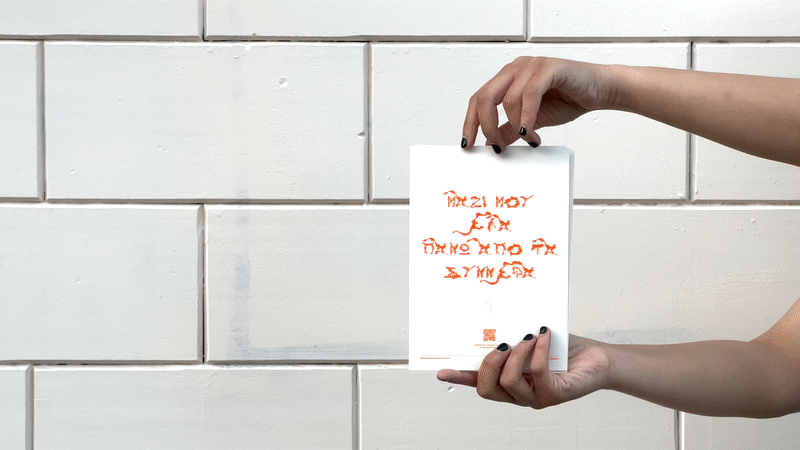 ΜΑΖΙ ΜΟΥ
ΕΛΑ
ΠΑΝΩ ΑΠΟ ΤΑ
ΣΥΝΝΕΦΑ